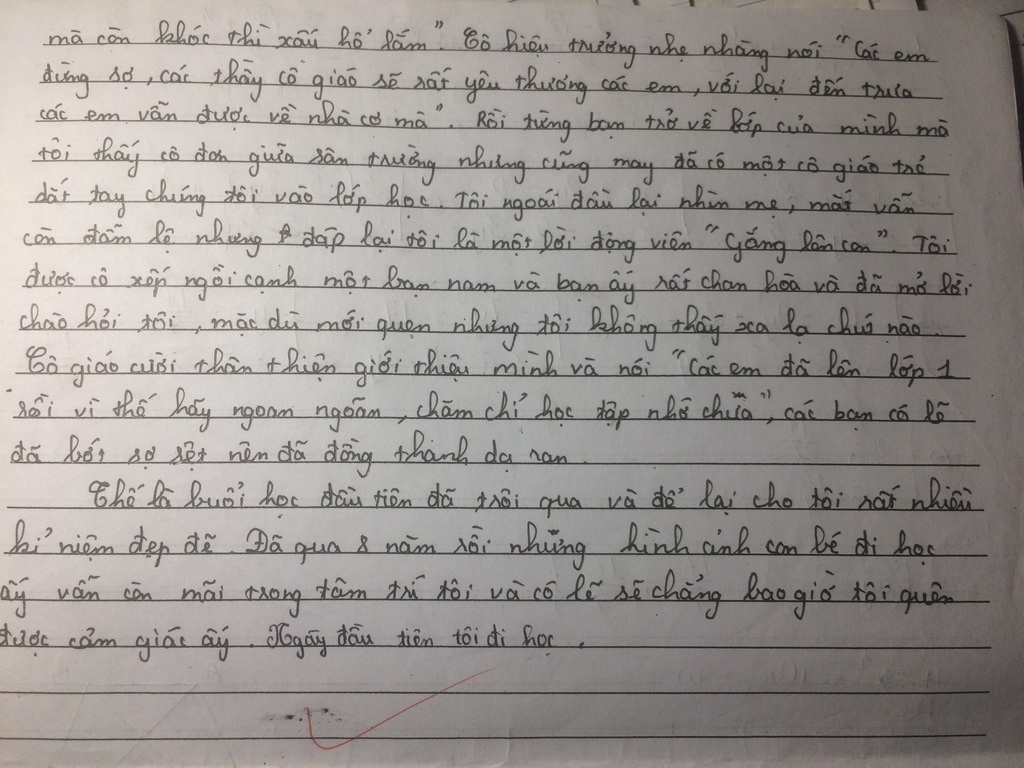 mà còn khóc thì xấu hổ lắm". Cô hiệu trưởng nhẹ nhàng nói "Các em
đừng sợ, các thầy cô giáo sẽ rất yêu thương các em, với lại đến trưa
các em vẫn được về nhà cơ mà". Rồi từng bạn trở về lớp của mình mà
tôi thấy cô đơn giữa sân trường nhưng cũng may đã có một cô giáo trẻ
dắt tay chúng tôi vào lớp học. Tôi ngoái đầu lại nhìn mẹ, mắt vẫn
còn đẫm lệ nhưng đáp lại tôi là một lời động viên "Gắng lên con". Tôi
được cô xếp ngồi cạnh một bạn nam và bạn ấy rất chan hoà và đã mở lời
chào hỏi tôi, mặc dù mới quen nhưng tôi không thấy xa lạ chút nào.
Cô giáo cười thân thiện giới thiệu mình và nói "Các em đã lên lớp 1
rồi vì thế hãy ngoan ngoãn, chăm chỉ học tập nhớ chưa", các bạn có lẽ
đã bớt sợ sệt nên đã đồng thanh dạ ran.
Thế là buổi học đầu tiên đã trôi qua và để lại cho tôi rất nhiều
kỉ niệm đẹp đẽ. Đã qua 8 năm rồi những hình ảnh con bé đi học
ấy vẫn còn mãi trong tâm trí tôi và có lẽ sẽ chẳng bao giờ tôi quên
được cảm giác ấy. Ngày đầu tiên tôi đi học.